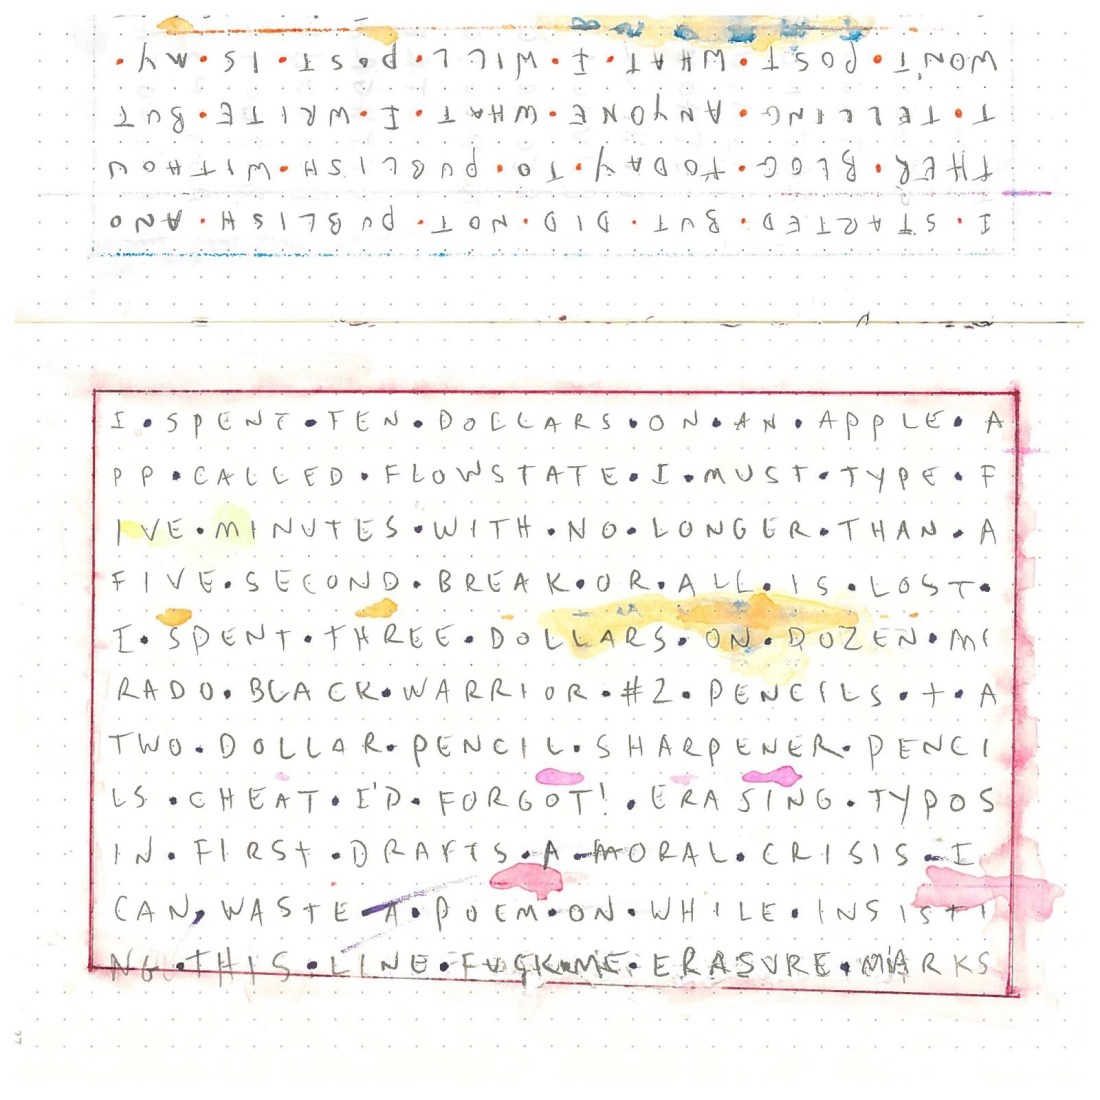 I·STARTED·BUT·DID·NOT·PUBLISH·ANO
THER·BLOG·TODAY·TO·PUBLISH·WITHOU
T·TELLING·ANYONE·WHAT·I·WRITE·BUT
WON'T·POST·WHAT·I·WILL·POST·IS·MY·
I·SPENT·TEN·DOLLARS·ON·AN·APPLE·A
PP·CALLED·FLOWSTATE·I·MUST·TYPE·F
IVE·MINUTES·WITH·NO·LONGER·THAN·A
FIVE·SECOND·BREAK·OR·ALL·IS·LOST·
I·SPENT·THREE·DOLLARS·ON·DOZEN·MI
RADO·BLACK·WARRIOR·#2·PENCILS·+·A
TWO·DOLLAR·PENCIL·SHARPENER·PENCI
LS·CHEAT·I'D·FORGOT!·ERASING·TYPOS
IN·FIRST·DRAFTS·A·MORAL·CRISIS·I
CAN·WASTE·A·POEM·ON·WHILE·INSISTI
NG·THIS·LINE·FUCK·ME·ERASURE·MARKS